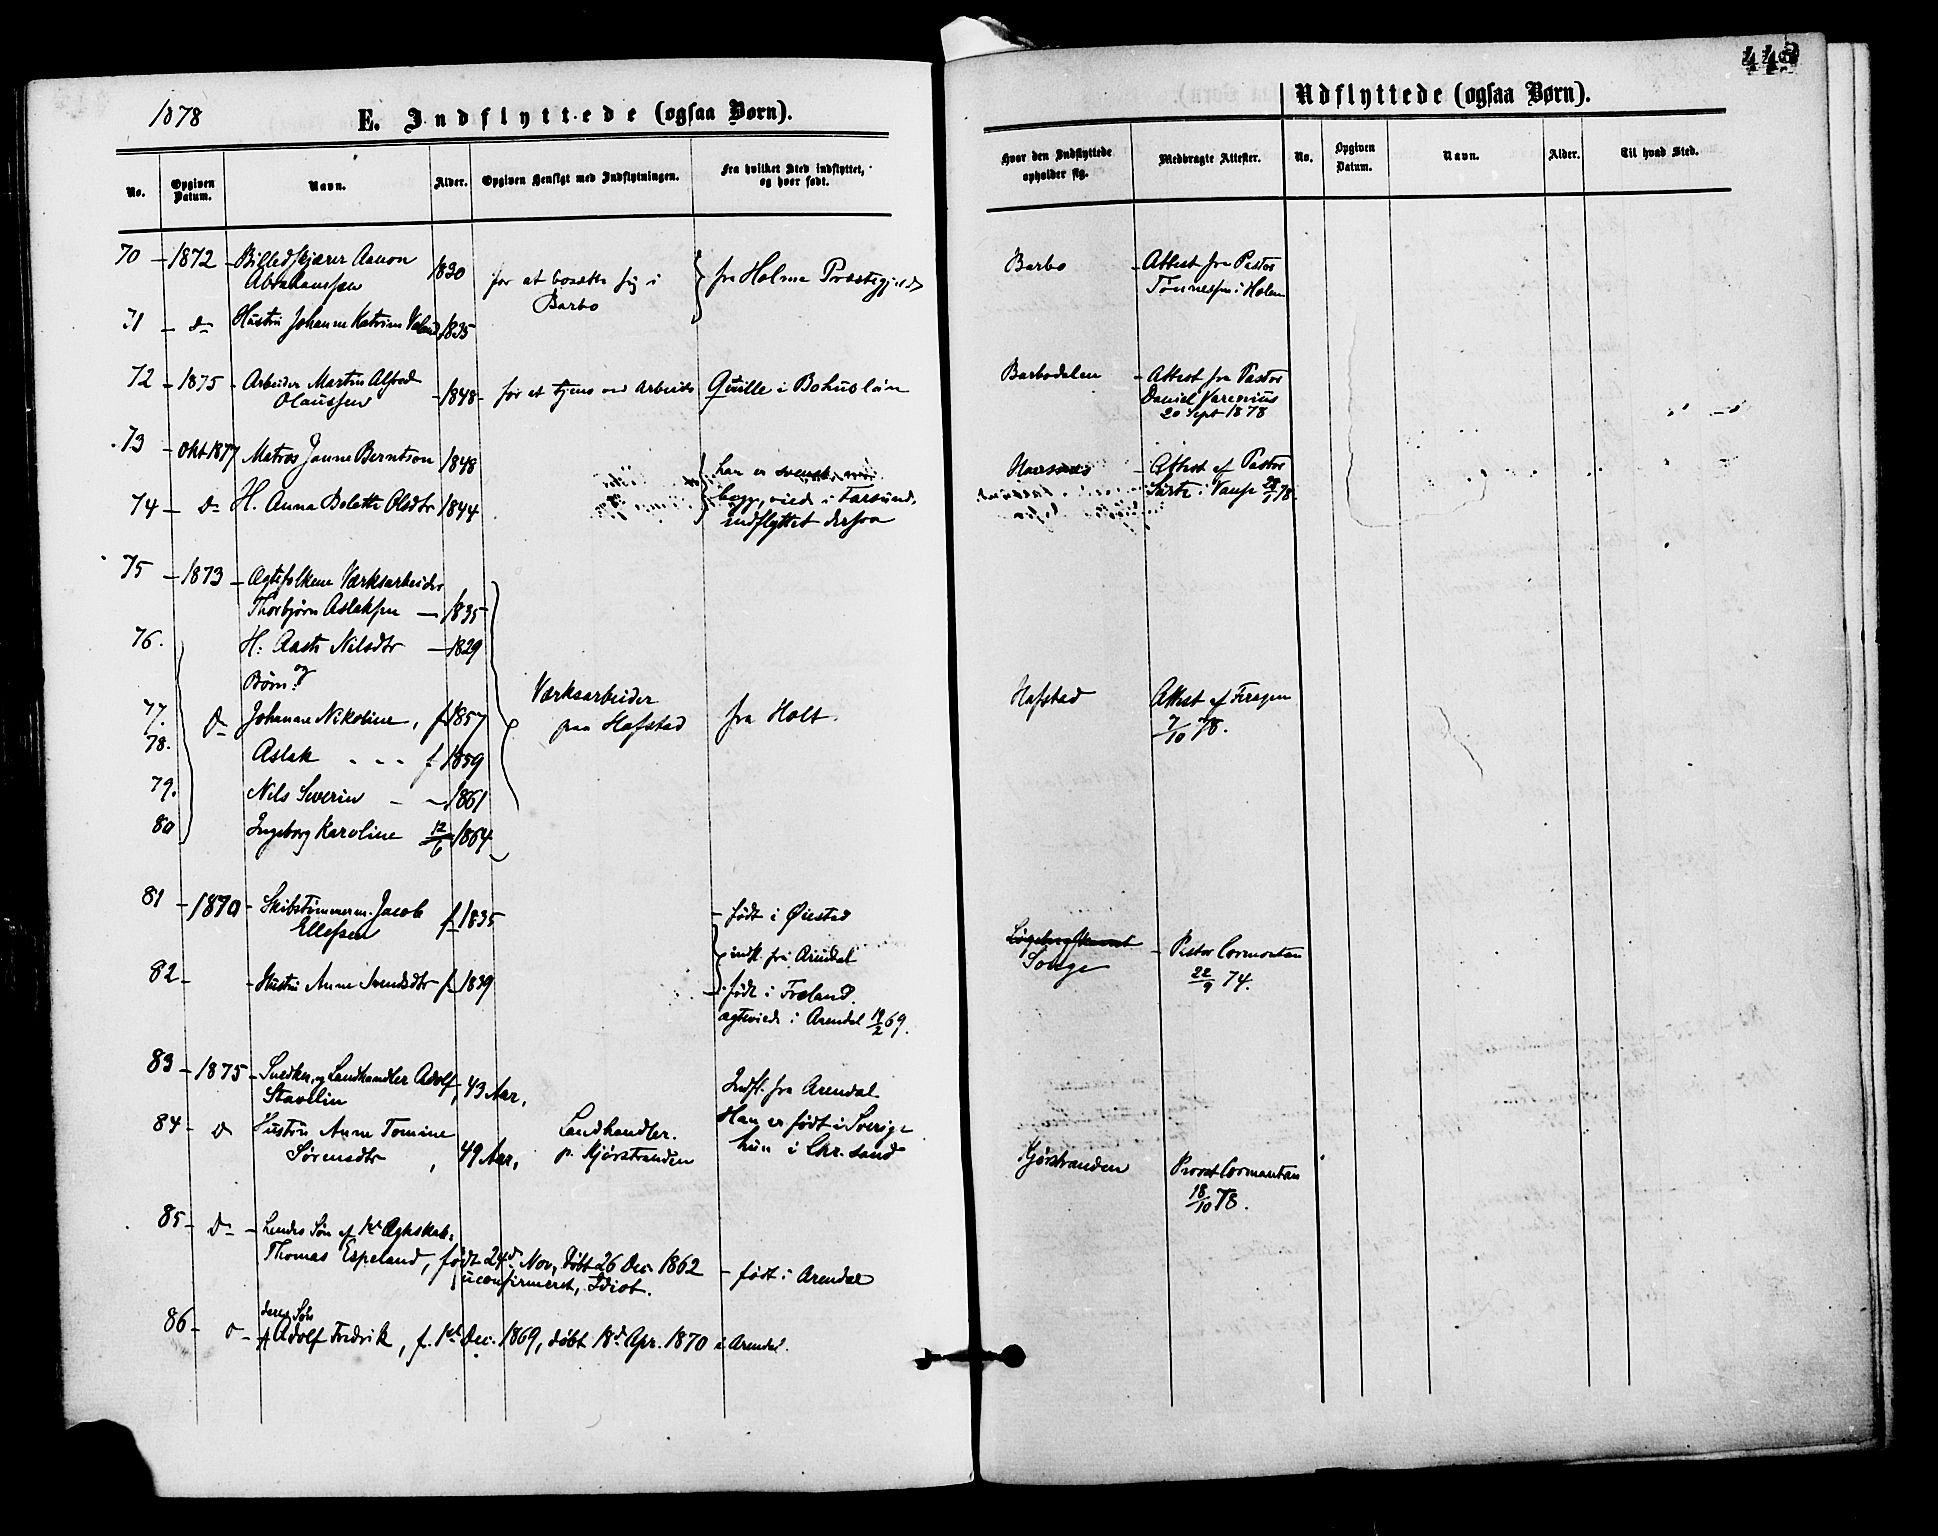 1878
E. Indflyttede (ogsaa Børn).
No.
Opgiven Datum.
Navn.
Alder.
Opgiven Hensigt med Indflytningen.
Fra hvilket Sted indflyttet, og hvor født.
Hvor den Indflyttede opholder sig.
Medbragte Attester.
Udflyttede (ogsaa Børn).
No.
Opgiven Datum.
Navn.
Alder.
Til hvad Sted.
70 - 1872 - Billedskjærer Aanon 1830 for at bosætte sig i fra Holme Præstegjeld Barbo - Attest fra Pastor
Abrahamsen Barbo Tønnesen i Holme
71 - do Hustru Johanne Katrine 1835
72 - 1875 - Arbeider Martin Alfred - 1848 - for at tjene ved Arbeide Quille i Bohuslän Barbodalen - Attest fra Pastor
Olaussen Daniel Varenius
20 Sept 1878
73 - Okt 1877 Matros Janne Berntson 1848 han er svensk, Attest af Pastor
74 - do H. Anna Bolette Olsdtr 1844 viede i Farsund, i Vanse 28/9 78.
indflyttet derfra
75 - 1873 - Ægtefolkene Værksarbeider
Thorbjørn Aslaksen - 1835
76. H. Aaste Nilsdtr - 1829
og
Børn:
77. do Johanne Nikoline, f. 1857 Værksarbeider fra Holt. Hafstad Attest af
78. Aslak - - - f 1859 paa Hafstad 7/10 78.
79. Nils Severin - - 1861
80 Ingeborg Karoline 12/6 1864
81 - 1870 - Skibstømmerm. Jacob f. 1835 - født i Øiestad
Ellefsen indfl. fra Arendal Songe - Pastor Cormontan
22/9 74.
82 - - Hustru Anne Svendsdtr f. 1839 født i Froland.
ægteviede i Arendal 19/2 69.
83 - 1875 - Snedker og Landhandler Adolf, 43 Aar, Indfl. fra Arendal
Stavelin
84 - do Hustru Anne Tomine Landhandler. Han er født i Sverige
Sørensdtr, 49 Aar, p. Kjørstranden hun i Chr.sand Kjørstranden Provst Cormontan
18/10 78.
85 - do - hendes Søn af 1ste Ægteskab,
Thomas Espeland, født 24de Nov, døbt 26 Dec 1862 - født i Arendal
uconfirmeret, Idiot.
86 - do - deres Søn
Adolf Fredrik, f. 1ste Dec. 1869, døbt 18de Apr. 1870 i Arendal.